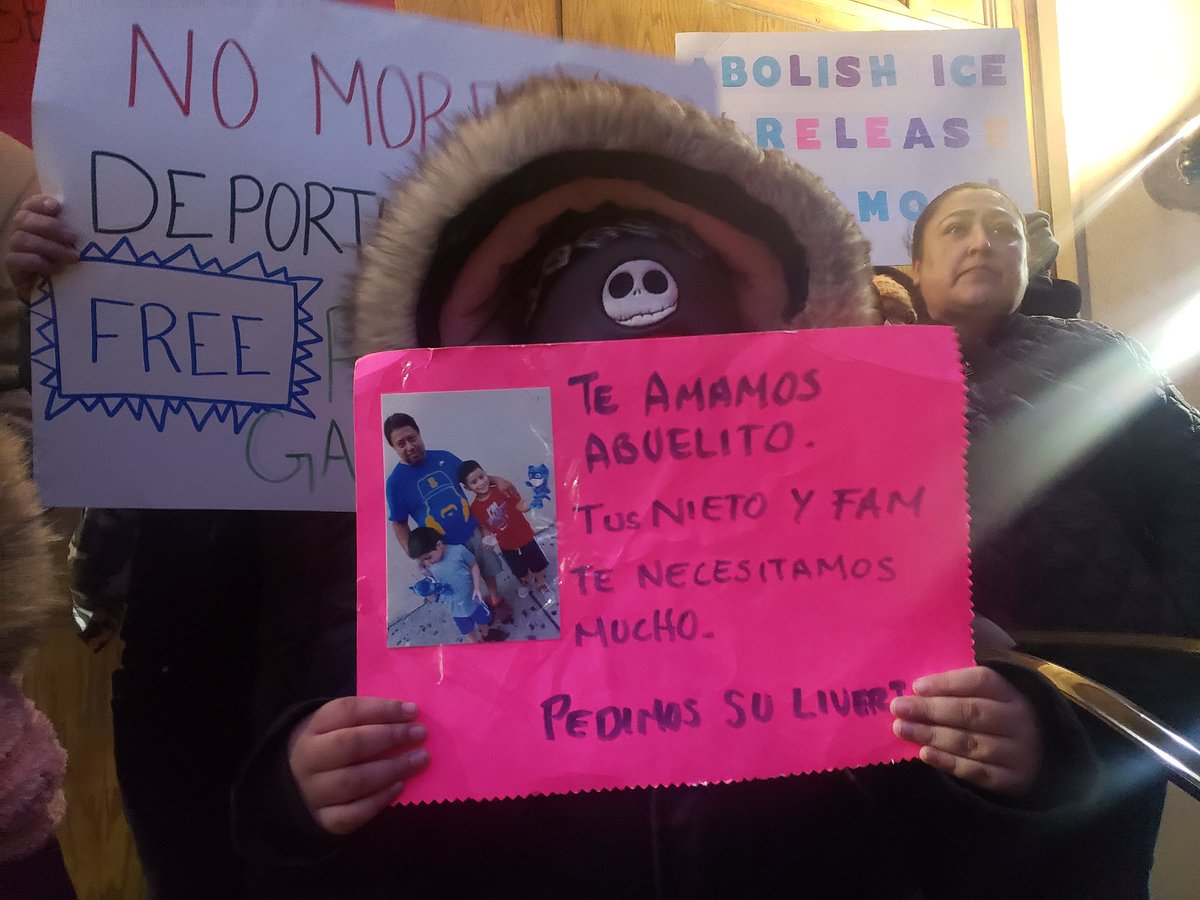 NO MORE
DEPORT
FREE
GA
ABOLISH ICE
RELEASE
MO
TE AMAMOS
ABUELITO.
TUS NIETO Y FAM
TE NECESITAMOS
MUCHO.
PEDIMOS SU LIVERT